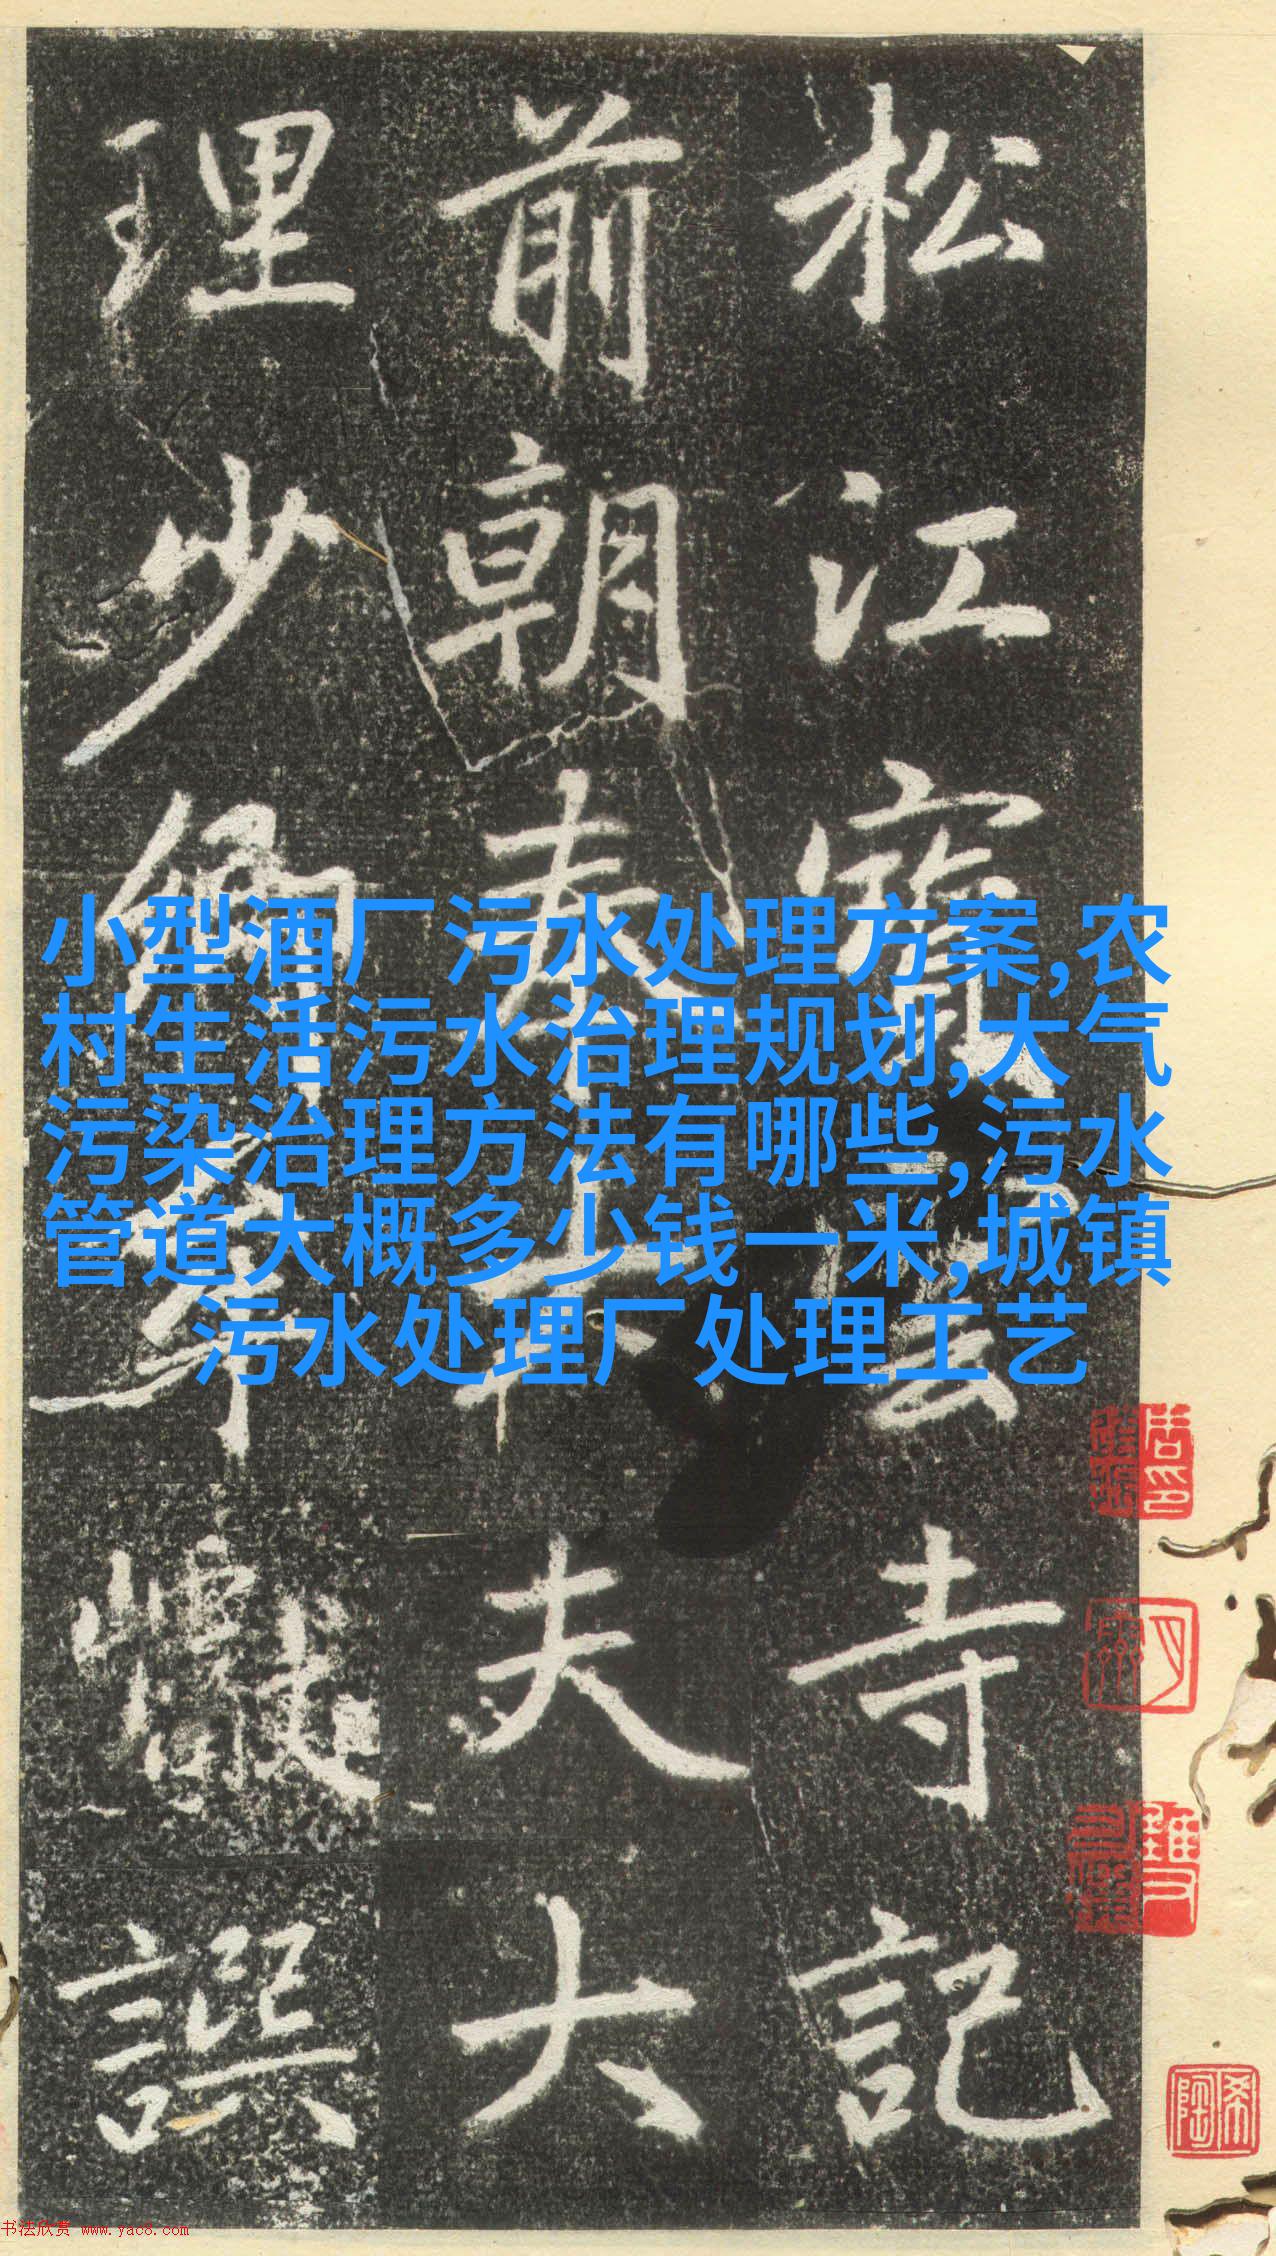 松江寶雲寺記
前朝奉大夫大
理少卿牟譔
小型酒厂污水处理方案,农
村生活污水治理规划,大气
污染治理方法有哪些,污水
管道大概多少钱一米,城镇
污水处理厂处理工艺
希陶
书法欣赏 www.yac8.com